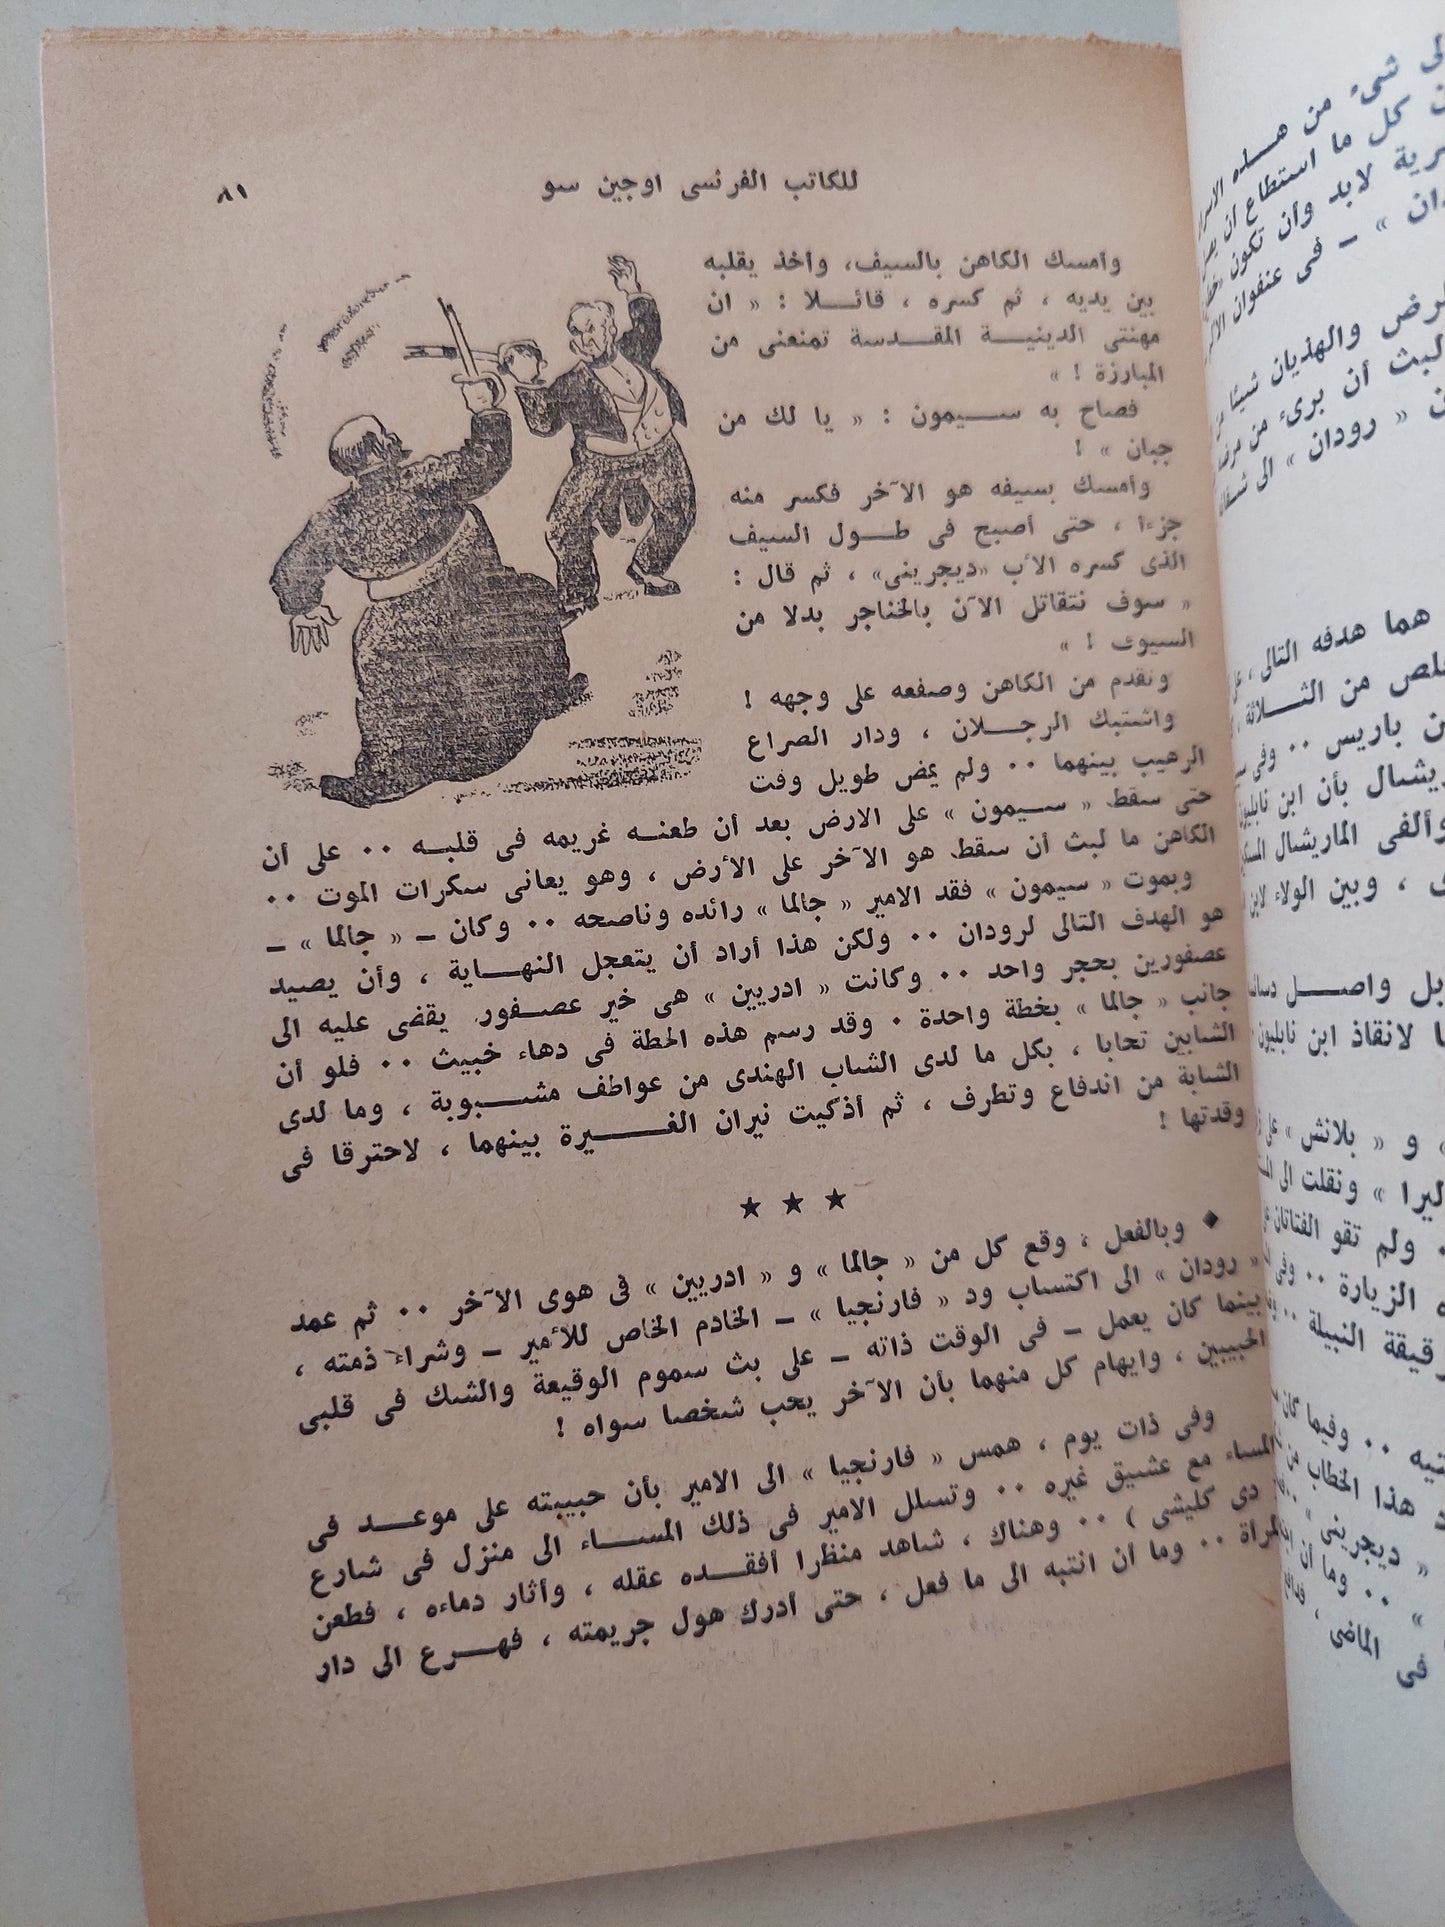 للكاتب الفرنسى اوجين سو
٨١
وأمسك الكاهن بالسيف، وأخذ يقلبه
بين يديه ، ثم كسره ، قائلا : « ان
مهنتى الدينية المقدسة تمنعنى من
المبارزة ! »
فصاح به سيمون : « يا لك من
جبان » !
وأمسك بسيفه هو الآخر فكسر منه
جزءا ، حتى أصبح فى طول السيف
الذى كسره الأب «ديجرينى» ، ثم قال :
« سوف نتقاتل الآن بالخناجر بدلا من
السيوف ! »
وتقدم من الكاهن وصفعه على وجهه !
واشتبك الرجلان ، ودار الصراع
الرهيب بينهما .. ولم يمض طويل وقت
حتى سقط « سيمون » على الارض بعد أن طعنه غريمه فى قلبه .. على أن
الكاهن ما لبث أن سقط هو الآخر على الأرض ، وهو يعانى سكرات الموت ..
وبموت « سيمون » فقد الامير « جالما » رائده وناصحه .. وكان – « جالما » –
هو الهدف التالى لرودان .. ولكن هذا أراد أن يتعجل النهاية ، وأن يصيد
عصفورين بحجر واحد .. وكانت « ادريين » هى خير عصفور يقضى عليه الى
جانب « جالما » بخطة واحدة . وقد رسم هذه الخطة فى دهاء خبيث .. فلو أن
الشابين تحابا ، بكل ما لدى الشاب الهندى من عواطف مشبوبة ، وما لدى
الشابة من اندفاع وتطرف ، ثم أذكيت نيران الغيرة بينهما ، لاحترقا فى
وقدتها !
★ ★ ★
◆ وبالفعل ، وقع كل من « جالما » و « ادريين » فى هوى الآخر .. ثم عمد
« رودان » الى اكتساب ود « فارنجيا » – الخادم الخاص للأمير – وشراء ذمته ،
بينما كان يعمل – فى الوقت ذاته – على بث سموم الوقيعة والشك فى قلبى
الحبيبين ، وايهام كل منهما بأن الآخر يحب شخصا سواه !
وفى ذات يوم ، همس « فارنجيا » الى الامير بأن حبيبته على موعد فى
المساء مع عشيق غيره .. وتسلل الامير فى ذلك المساء الى منزل فى شارع
دى كليشى ) .. وهناك ، شاهد منظرا أفقده عقله ، وأثار دماءه ، فطعن
المرأة .. وما أن انتبه الى ما فعل ، حتى أدرك هول جريمته ، فهرع الى دار
شىء من هذه
كل ما استطاع أن
لابد وأن تكون
» – فى عنفوان
والهذيان شيئا
أن برىء من
« رودان » الى
هما هدفه التالى ،
من الثلاثة
باريس .. وفى
بأن ابن
وألفى الماريشال
، وبين الولاء
بل واصل
لانقاذ ابن نابليون
و « بلانش » على
» ونقلت الى
ولم تقو الفتاتان
الزيارة .. وفى
النبيلة ..
.. وفيما كان
هذا الخطاب من
« ديجرينى »
.. وما أن
فى الماضى ،